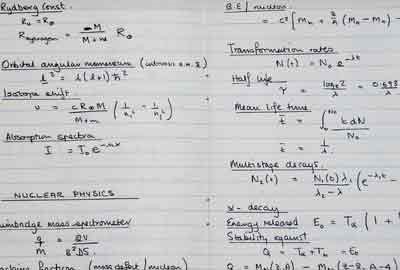 Rydberg Const.
R₀ = R∞
R_Hydrogen = M / (M + m) R∞
Orbital angular momentum
l² = l(l+1)ħ²
Isotope shift
ν = cR∞M / (M+m) (1/n₁² - 1/n₂²)
Absorption spectra
I = I₀e
NUCLEAR PHYSICS
mass spectrometer
q/M = 2V / B²
fraction (mass defect / nucleon)
B.E / nucleon
= c² [M_n + (M_H - M_n) -
Transformation rates
N(t) = N₀ e^-λt
Half life
τ = log_e 2 / λ = 0.693
Mean life time
t̄ = ∫₀^N₀ t dN / N₀
t̄ = 1/λ
Multistage decays
N₂(t) = N₁(0)λ₁ / (λ₂ - λ₁) (e^-λ₁t -
α - decay
Energy released E₀ = Tα (1 +
Stability against
Q = Tα + T = E₀
Q = M (Z,A) - M (Z-2, A-4)